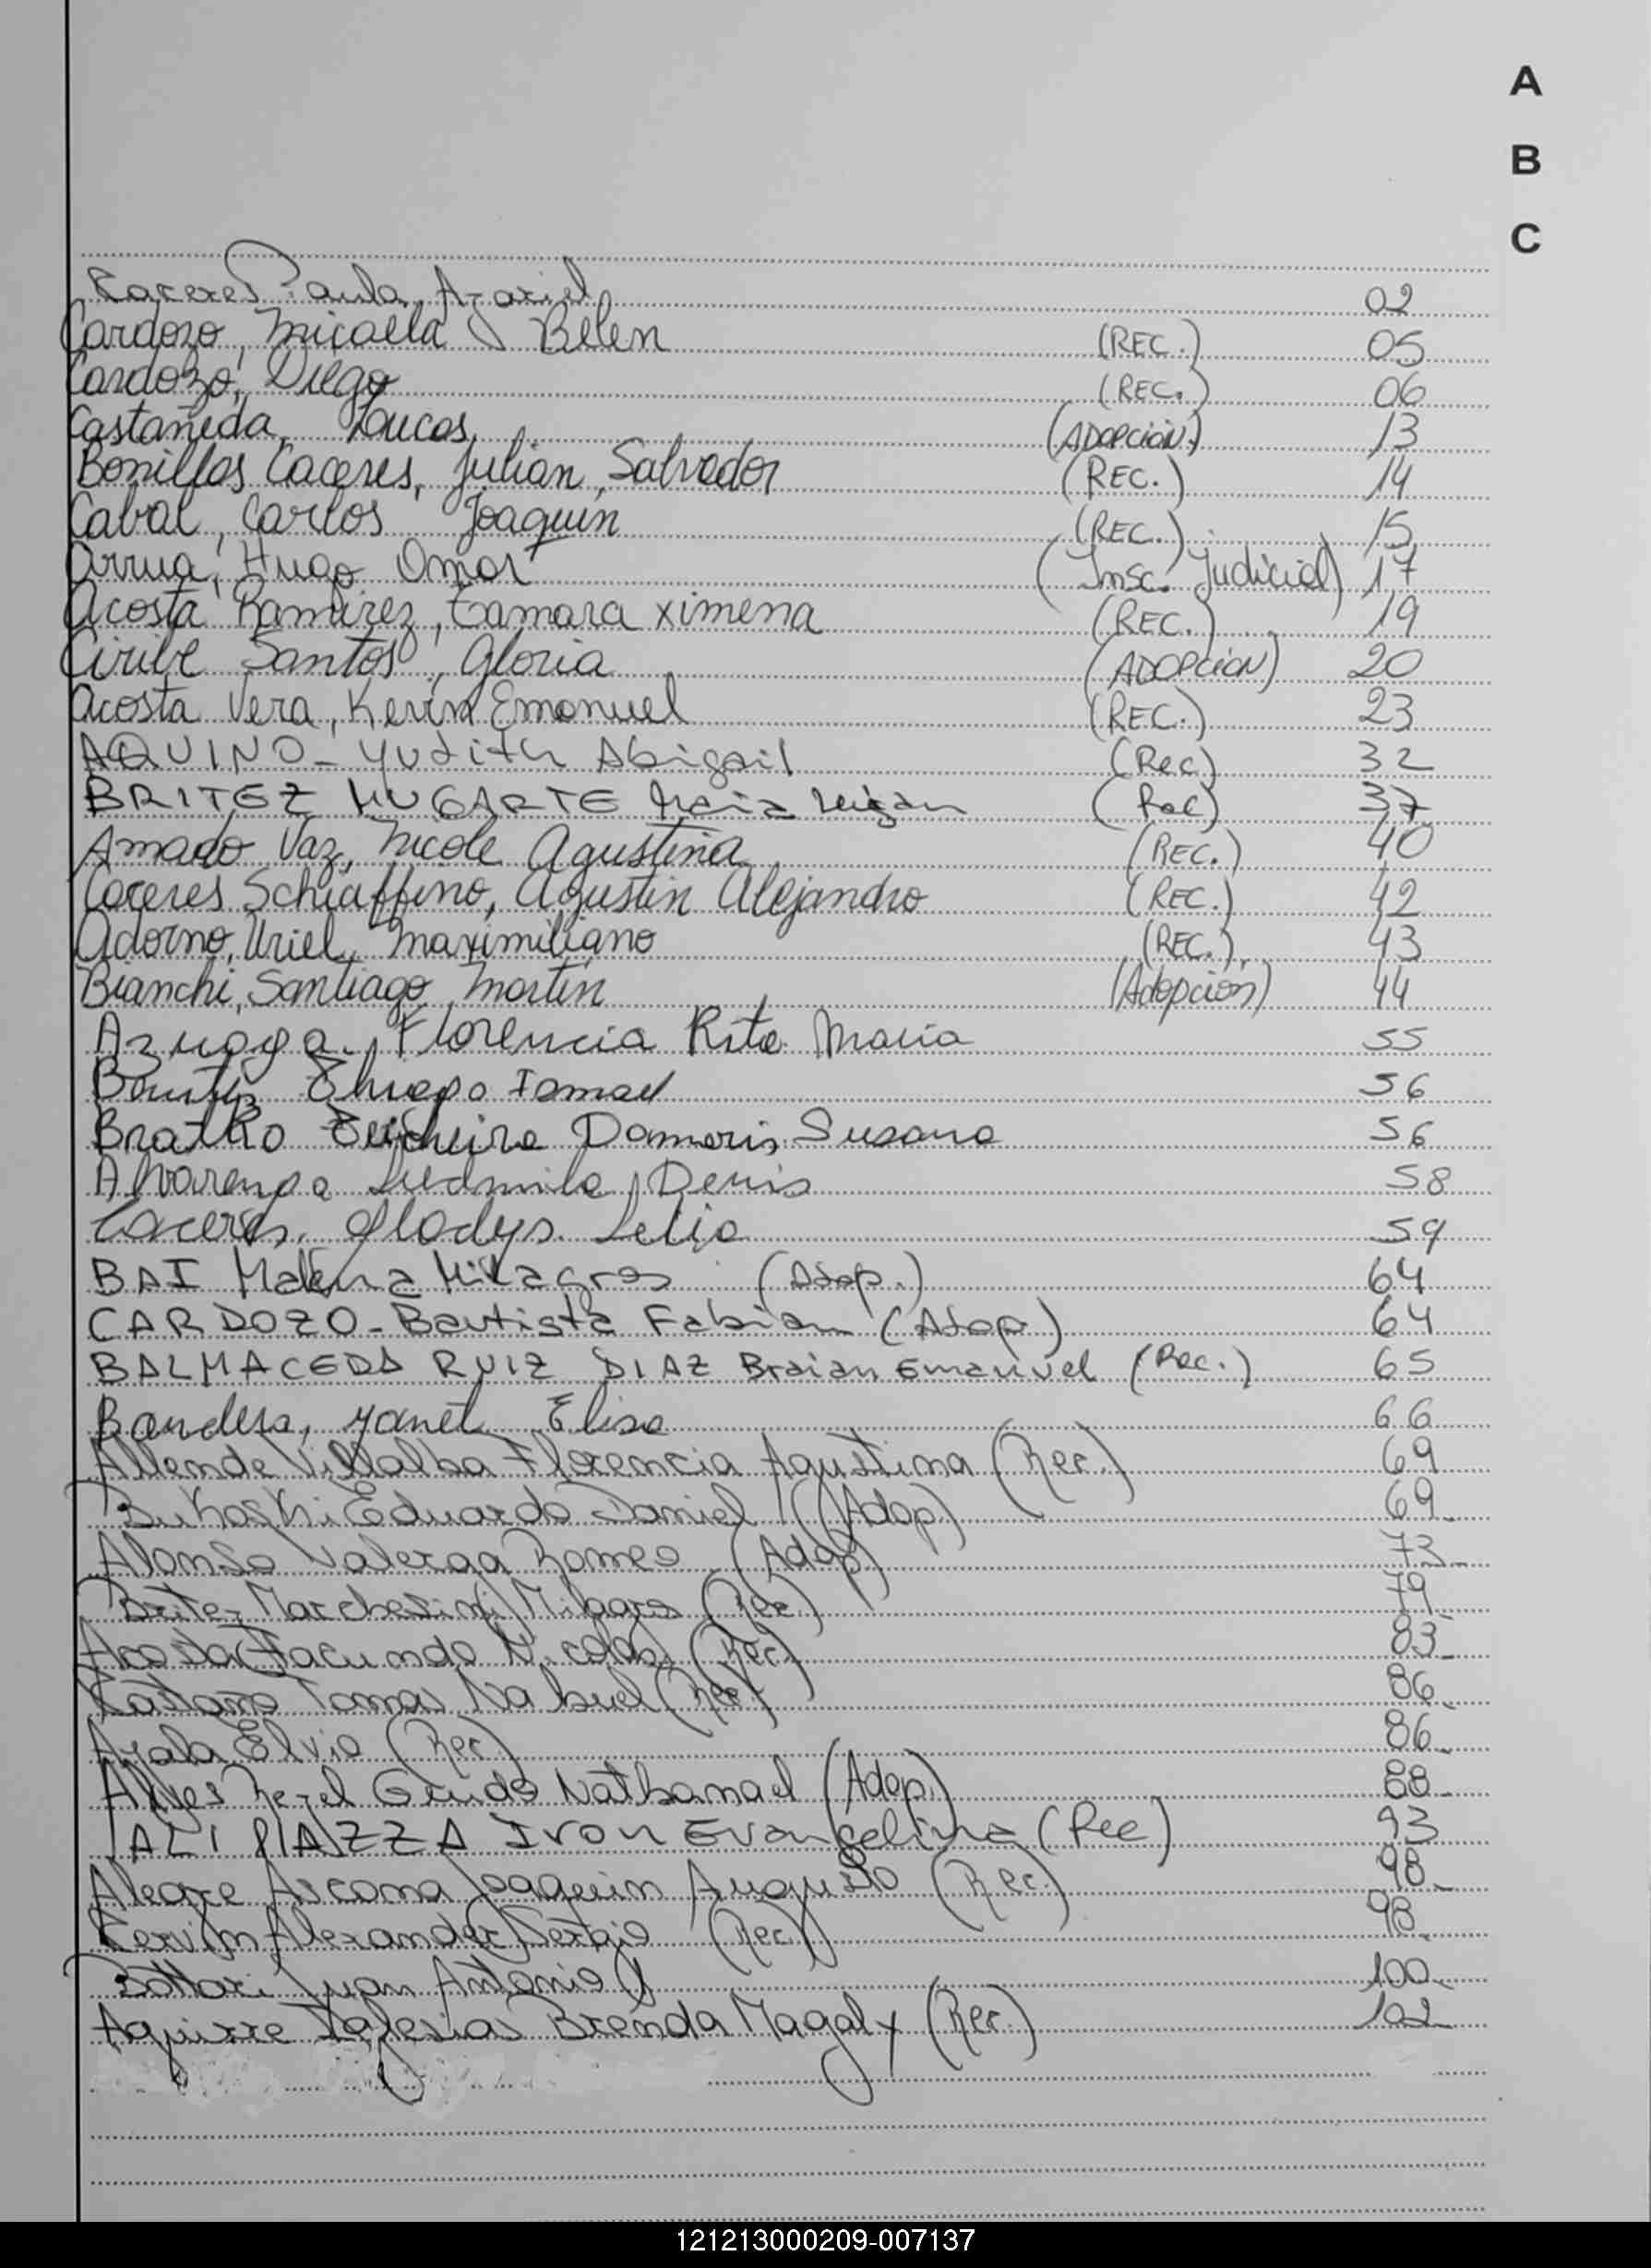 A
B
C
Caceres Paula Azaxiel 02
Cardozo, Micaela Belen (REC.) 05
Cardozo, Diego (REC.) 06
Castañeda, Loucas (ADOPCIÓN) 13
Bonillas Caceres, Julian, Salvador (REC.) 14
Cabal, Carlos Joaquin (REC.) 15
Arrua, Hugo Omar (Insc. Judicial) 17
Acosta Ramirez, Tamara Ximena (REC.) 19
Ciribe Santos, Gloria (ADOPCIÓN) 20
Acosta Vera, Kevin Emanuel (REC.) 23
AQUINO - Yudith Abigail (Rec) 32
BRITEZ MUGARTE (Rec) 37
Amado Vaz, Nicole Agustina (REC.) 40
Caceres Schiaffino, Agustin Alejandro (REC.) 42
Adorno, Uriel, Maximiliano (REC.) 43
Bianchi, Santiago Martin (Adopción) 44
Azuaga, Florencia Rita Maria 55
Benitez Thiago Ismael 56
Bratko Teicheira Damaris Susana 56
Alvarenga Ludmila Denis 58
Caceres, Gladys Lelia 59
BAI Malena Milagros (Adop.) 64
CARDOZO - Bautista Fabian (Adop) 64
BALMACEDA RUIZ DIAZ Braian Emanuel (Rec.) 65
Bandera, Yanet Elisa 66
Allende Villalba Florencia Agustina (Rec.) 69
Bukoski Eduardo Daniel (Adop) 69
Alonso Romeo (Adop) 73
Britez Marchesini Milagros (Rec) 79
Acosta Facundo Nicolas (Rec) 83
Tomas Nahuel (Rec) 86
Ayala Elvio (Rec) 86
Alves Guido Nathanael (Adop) 88
ALI PIAZZA Ivon Evangelina (Rec) 93
Alegre Ascona Joaquin Augusto (Rec.) 98
Alexander Sergio (Rec) 98
Bottari Juan Antonio 100
Aguirre Iglesias Brenda Magaly (Rec.) 102
121213000209-007137